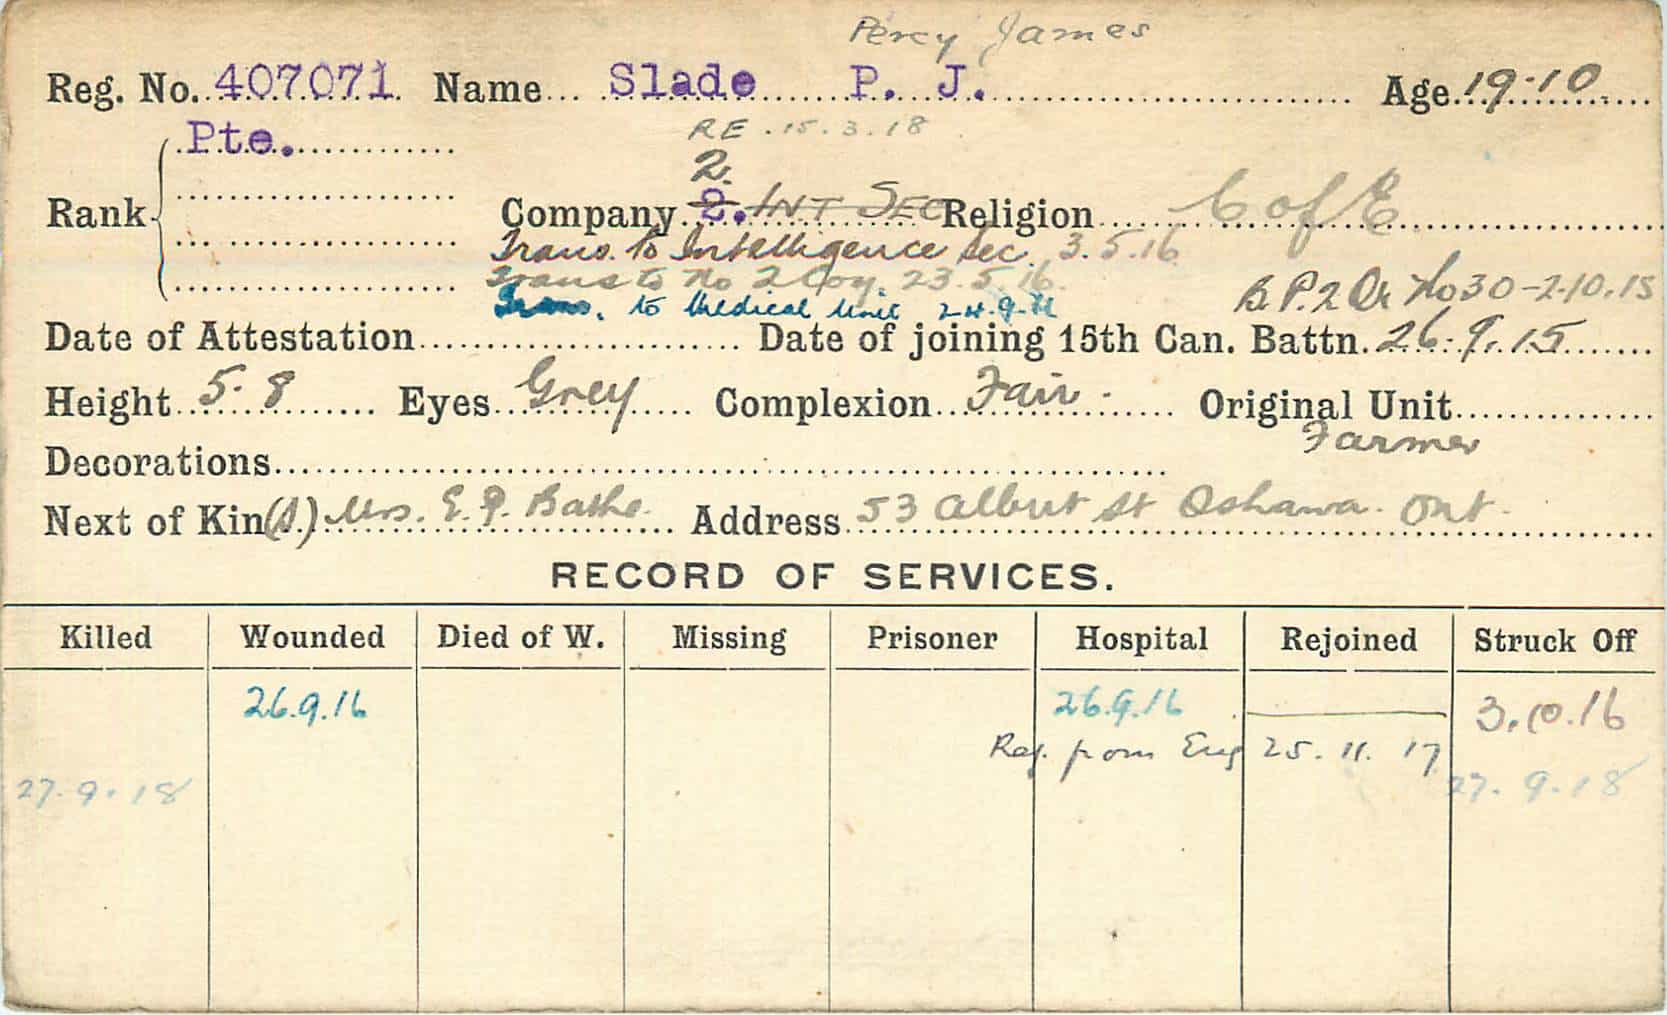 Percy James
Reg. No. 407071 Name Slade P. J. Age 19-10
Pte. RE. 15.3.18
2.
Rank Company 2. INT SEC Religion C of E
Trans. to Intelligence Sec. 3.5.16
Trans to No 2 Coy. 23.5.16.
B.P.2 Or No 30-2.10.15
Trans. to Medical Unit 24.9.16
Date of Attestation Date of joining 15th Can. Battn. 26.9.15
Height 5-8 Eyes Grey Complexion Fair. Original Unit
Farmer
Decorations
Next of Kin (S.) Mrs. E. P. Bathe. Address 53 Albert St Oshawa. Ont.
RECORD OF SERVICES.
Killed Wounded Died of W. Missing Prisoner Hospital Rejoined Struck Off
26.9.16 26.9.16 3.10.16
Rej. from Eng 25.11.17
27.9.18 27.9.18